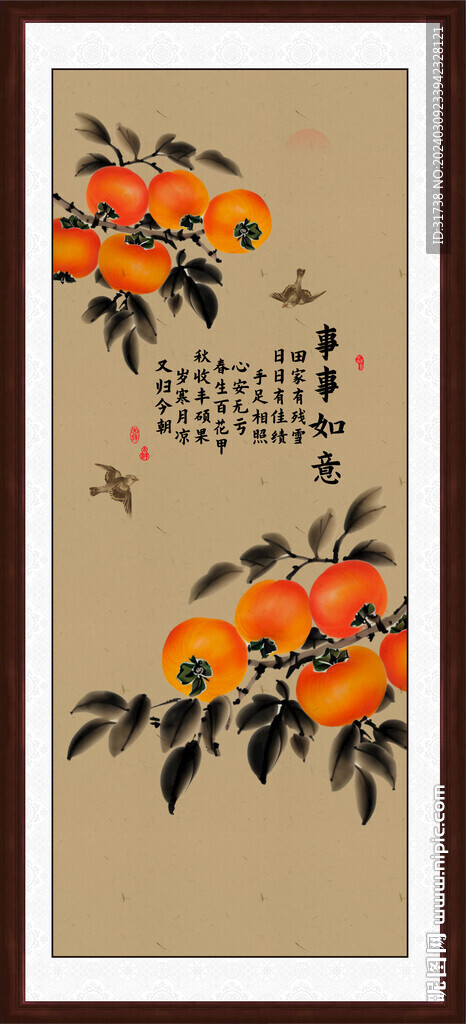 事事如意
田家有残雪
日日有佳绩
手足相照
心安无亏
春生百花甲
秋收丰硕果
岁寒月凉
又归今朝
ID:31738 NO:20240309233942328121
昵图网 www.nipic.com